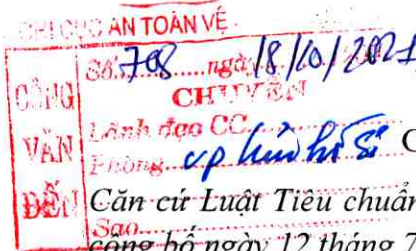 CHI CỤC AN TOÀN VỆ
CÔNG VĂN ĐẾN
Số: 708 ngày 18/10/2021
CHUYỂN
Lãnh đạo CC
Phòng VP
Căn cứ Luật Tiêu chuẩn
Sao
công bố ngày 12 tháng 7